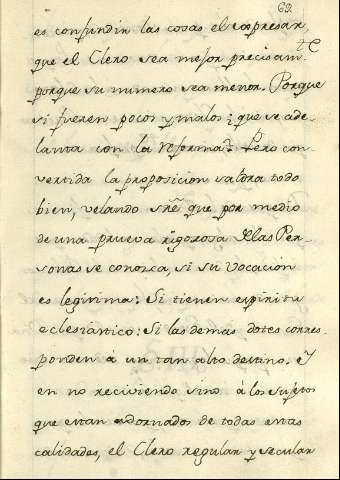 69.
es confundir las cosas el expresar,
que el Clero sea mejor precisam.te
porque su numero sea menor. Porque
si fueren pocos y malos; que se ade-
lanta con la reforma? Pero con-
vertida la proposicion saldra todo
bien, velando sre que por medio
de una prueva rigorosa de las Per-
sonas se conosca, si su vocacion
es legitima: Si tienen espiritu
eclesiástico: Si las demas dotes corres-
ponden á un tan alto destino. Y
en no reciviendo sino á los sujetos
que estan adornados de todas estas
calidades, el Clero regular y secular